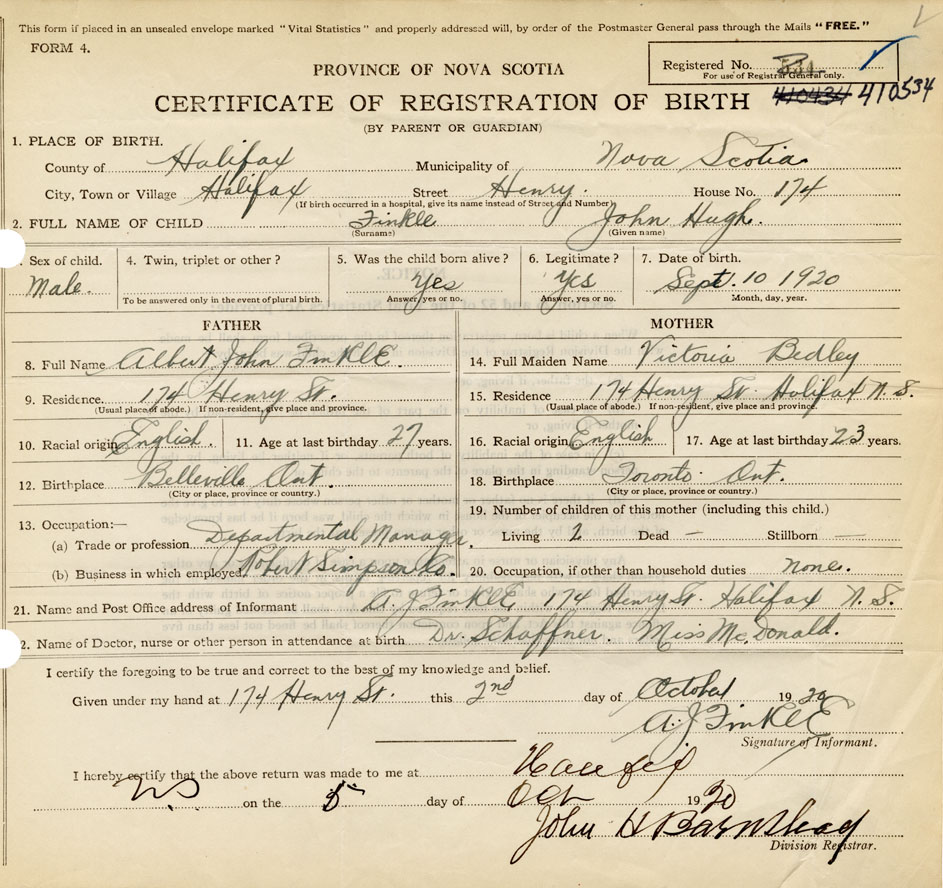 This form if placed in an unsealed envelope marked "Vital Statistics" and properly addressed will, by order of the Postmaster General pass through the Mails "FREE."
FORM 4.
Registered No.
For use of Registrar General only.
PROVINCE OF NOVA SCOTIA
CERTIFICATE OF REGISTRATION OF BIRTH 410434 410534
(BY PARENT OR GUARDIAN)
1. PLACE OF BIRTH.
County of Halifax Municipality of Nova Scotia
City, Town or Village Halifax Street Henry. House No. 174
(If birth occurred in a hospital, give its name instead of Street and Number)
2. FULL NAME OF CHILD Finkle John Hugh.
(Surname) (Given name)
Sex of child. 4. Twin, triplet or other? 5. Was the child born alive? 6. Legitimate? 7. Date of birth.
Male. Yes Yes Sept. 10 1920
To be answered only in the event of plural birth. Answer, yes or no. Answer, yes or no. Month, day, year.
FATHER MOTHER
8. Full Name Albert John Finkle. 14. Full Maiden Name Victoria Bedley
9. Residence 174 Henry St. 15. Residence 174 Henry St. Halifax N.S.
(Usual place of abode.) If non-resident, give place and province. (Usual place of abode.) If non-resident, give place and province.
10. Racial origin English. 11. Age at last birthday 27 years. 16. Racial origin English 17. Age at last birthday 23 years.
12. Birthplace Belleville Ont. 18. Birthplace Toronto Ont.
(City or place, province or country.) (City or place, province or country.)
13. Occupation:— 19. Number of children of this mother (including this child.)
(a) Trade or profession Departmental Manager. Living 2 Dead — Stillborn —
(b) Business in which employed Robert Simpson Co. 20. Occupation, if other than household duties none.
21. Name and Post Office address of Informant A. J. Finkle 174 Henry St. Halifax N.S.
2. Name of Doctor, nurse or other person in attendance at birth Dr. Schaffner. Miss McDonald.
I certify the foregoing to be true and correct to the best of my knowledge and belief.
Given under my hand at 174 Henry St. this 2nd day of October 1920
A. J. Finkle
Signature of Informant.
I hereby certify that the above return was made to me at Halifax
NS on the 5 day of Oct 1920
John H Barnstead
Division Registrar.